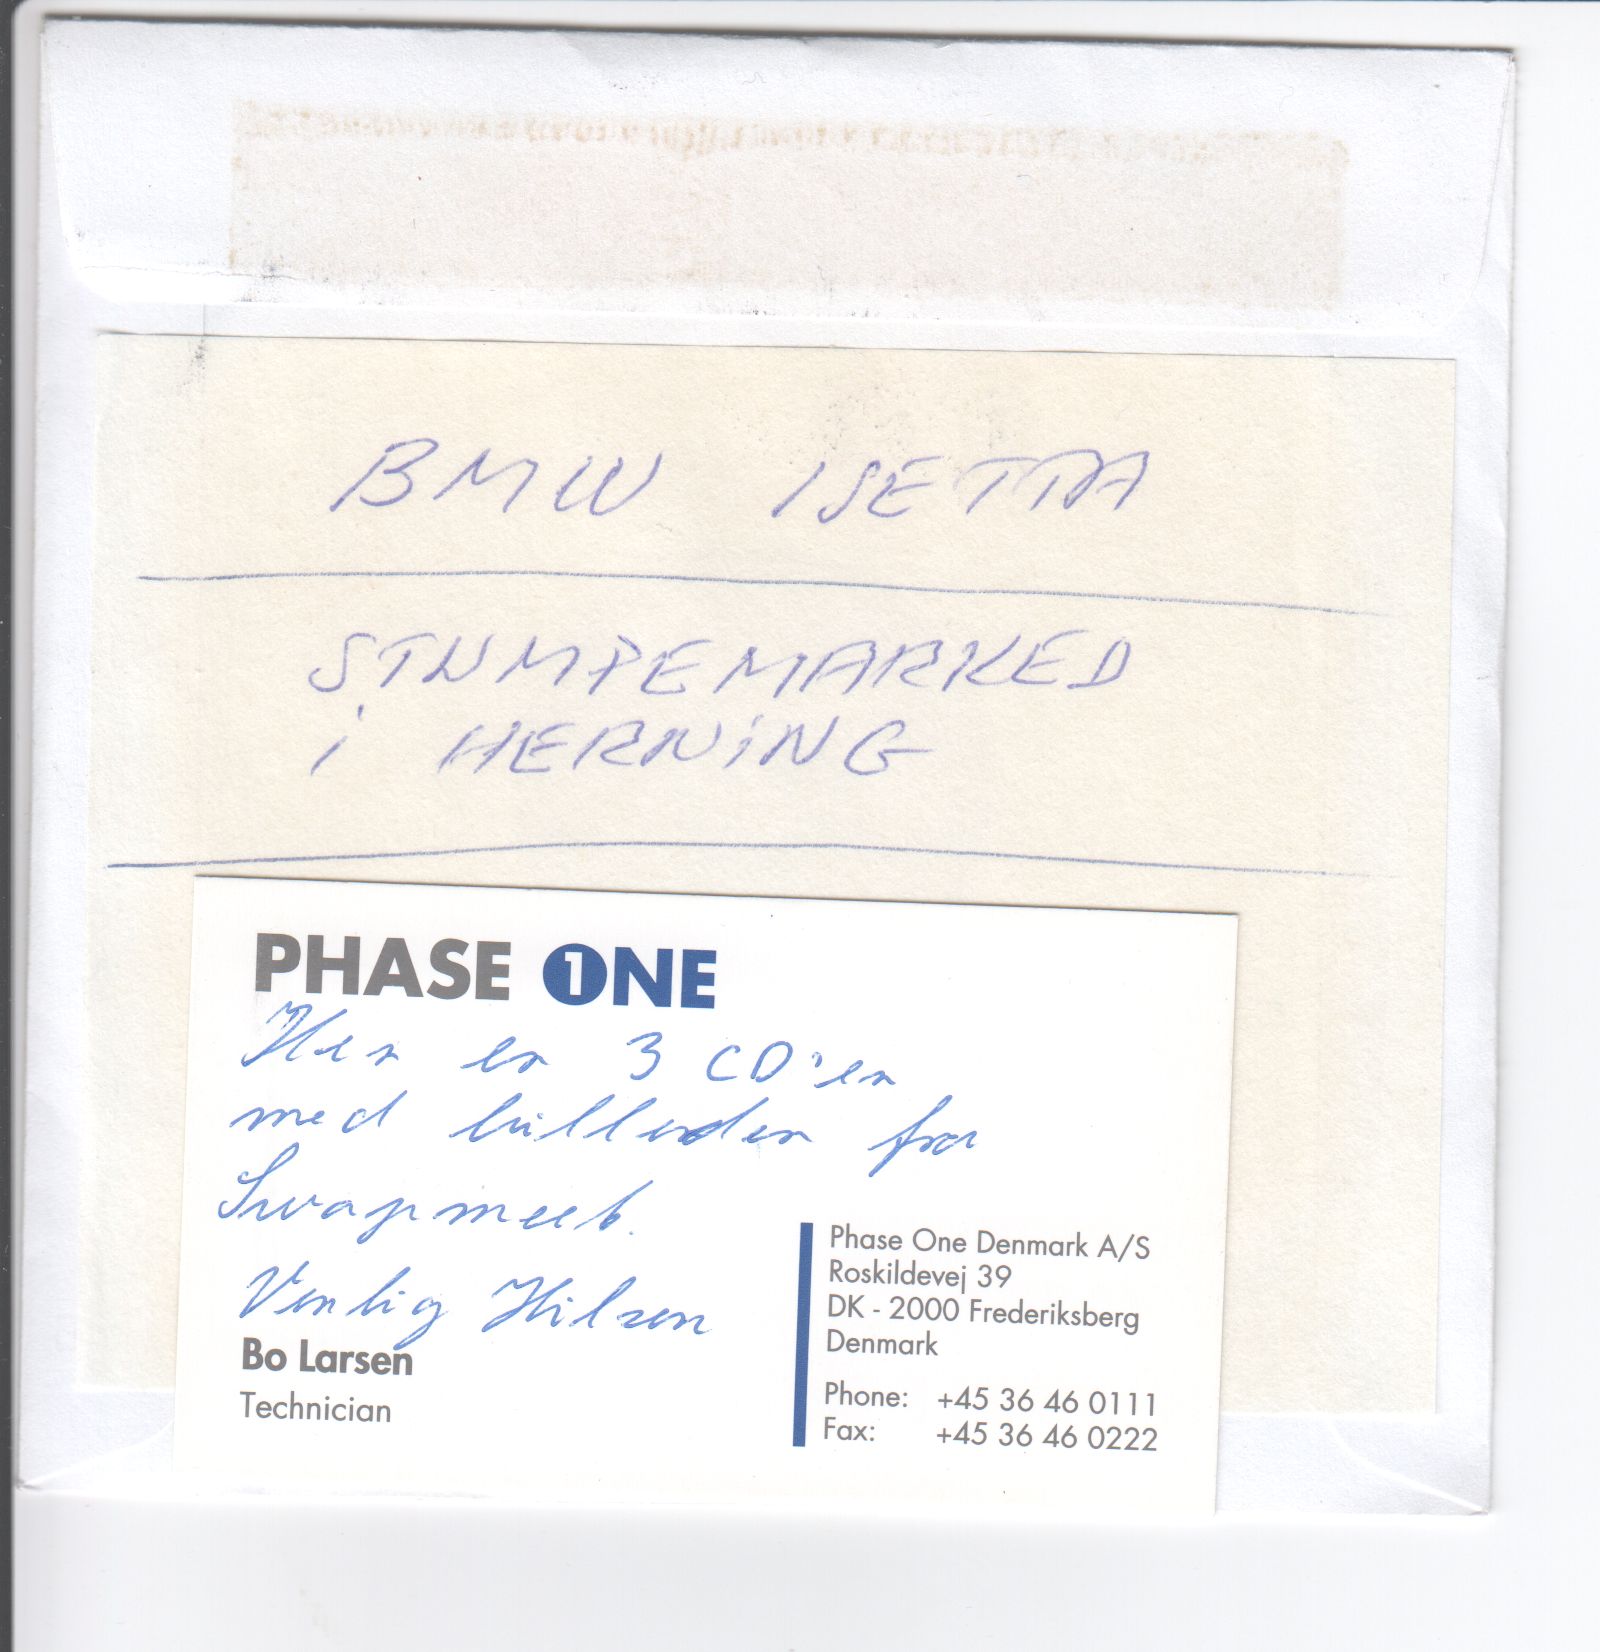 BMW ISETTA
STUMPEMARKED
i HERNiNG
PHASE ONE
Her er 3 CD'er
med billeder fra
Swapmeet.
Venlig Hilsen
Bo Larsen
Technician
Phase One Denmark A/S
Roskildevej 39
DK - 2000 Frederiksberg
Denmark
Phone: +45 36 46 0111
Fax: +45 36 46 0222